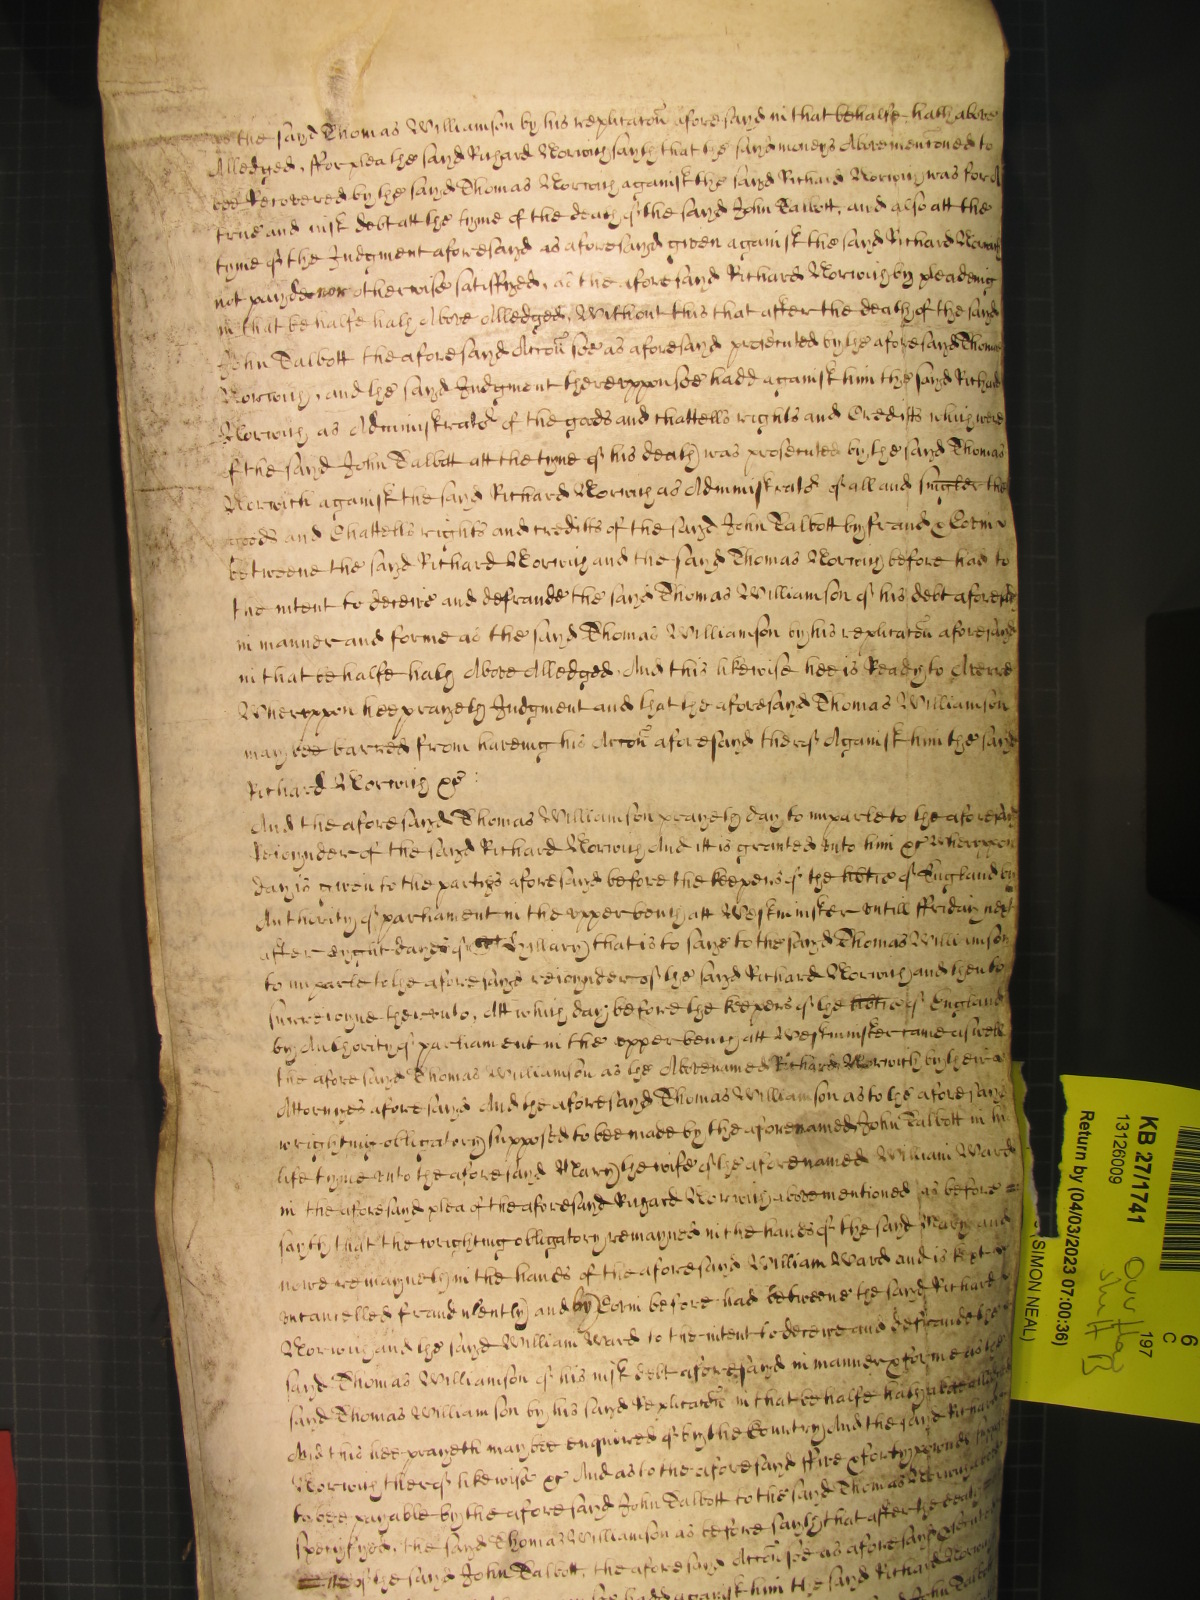 as the sayd Thomas Williamson by his replicacon aforesayd in that behalfe hath above
Alledged, ffor plea the sayd Richard Norwich sayth that the sayd moneys Abovemencioned to
bee Recovered by the sayd Thomas Norwich against the sayd Richard Norwich was for a
true and iust debt att the tyme of the death of the sayd John Talbott, and also att the
tyme of the Judgment aforesayd as aforesayd given against the sayd Richard Norwich
not payd nor otherwise satisfyed, as the aforesayd Richard Norwich by pleading
in that behalfe hath Above Alledged, Without this that after the death of the sayd
John Talbott the aforesayd Accon soe as aforesayd prosecuted by the aforesayd Thomas
Norwich, and the sayd Judgment thereuppon soe hadd against him the sayd Richard
Norwich as Administrator of the goods and chattells rights and Creditts which were
of the sayd John Talbott att the tyme of his death was prosecuted by the sayd Thomas
Norwich against the sayd Richard Norwich as Administrator of all and singler the
goods and Chattells rights and creditts of the sayd John Talbott by fraud & Covin
betweene the sayd Richard Norwich and the sayd Thomas Norwich before had to
the intent to deceive and defraude the sayd Thomas Williamson of his debt aforesayd
in manner and forme as the sayd Thomas Williamson by his replicacon aforesayd
in that behalfe hath Above Alledged. And this likewise hee is Ready to Averre
Whereuppon hee prayeth Judgment and that the aforesayd Thomas Williamson
may bee barred from haveing his Accon aforesayd thereof Against him the sayd
Richard Norwich &c :
And the aforesayd Thomas Williamson prayeth day to imparle to the aforesayd
Reioynder of the sayd Richard Norwich And itt is granted unto him &c Whereuppon
day is given to the partyes aforesayd before the keepers of the libtie of England by
Authority of parliament in the upper bench att Westminster untill ffriday next
after eyght dayes of St Hillary that is to saye to the sayd Thomas Williamson
to imparle to the aforesayd reioynder of the sayd Richard Norwich and then to
surreioyne thereunto, Att which day before the keepers of the libtie of England
by Authority of parliament in the upper bench att Westminster came aswell
the aforesayd Thomas Williamson as the Abovenamed Richard Norwich by their
Attorneyes aforesayd And the aforesayd Thomas Williamson as to the aforesayd
wrighting obligatory supposed to bee made by the aforenamed John Talbott in his
life tyme unto the aforesayd Mary the wife of the aforenamed William Ward
in the aforesayd plea of the aforesayd Richard Norwich abovementioned as before
sayth that the wrighting obligatory remayned in the hands of the sayd Mary and
nowe remayneth in the hands of the aforesayd William Ward and is kept
uncancelled fraudulently and by Covin before had betweene the sayd Richard
Norwich and the sayd William Ward to the intent to deceive and defraude the
sayd Thomas Williamson of his iust debt aforesayd in manner & forme as the
sayd Thomas Williamson by his sayd Replicacon in that behalfe hath above alledged
And this hee prayeth may bee enquired of by the Country And the sayd Richard
Norwich thereof likewise &c And as to the aforesayd ffive & forty pownds
to bee payable by the aforesayd John Talbott to the sayd Thomas Norwich
specifyed, the sayd Thomas Williamson as before sayth that after the death
of the sayd John Talbott, the aforesayd Accon soe as aforesayd
soe hadd against him the sayd Richard Norwich
John Talbott
KB 27/1741
13126009
Return by (04/03/2023 07:00:36)
(SIMON NEAL)
197
C
6